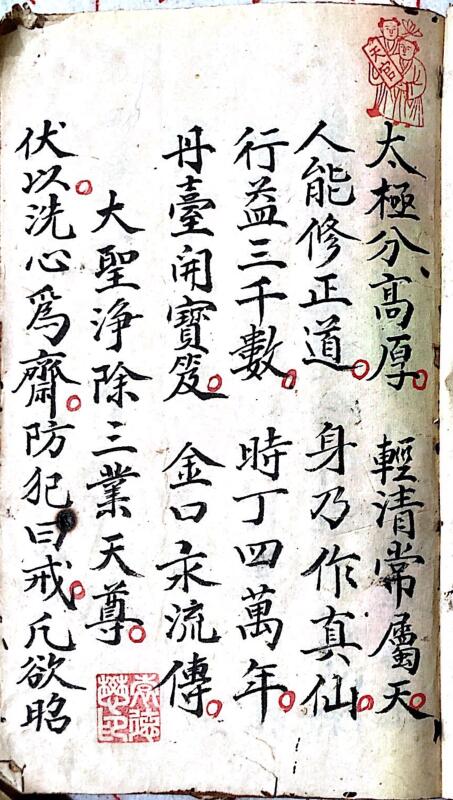 天官
太極分高厚。輕清常屬天。
人能修正道。身乃作真仙。
行益三千數。時丁四萬年。
丹臺開寶笈。金口永流傳。
大聖淨除三業天尊。
伏以。洗心爲齋。防犯曰戒。凡欲昭